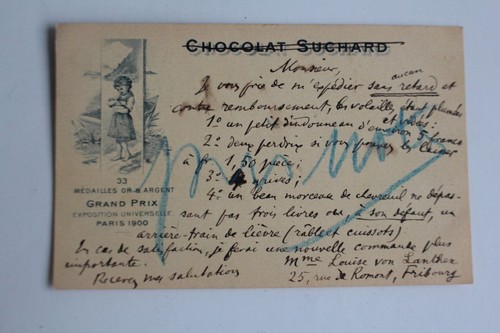 CHOCOLAT SUCHARD
Monsieur,
Je vous prie de m'expédier sans aucun retard et
contre remboursement, les volailles étant plumées
et vidées:
1° un petit dindonneau d'environ 5 francs
2° deux perdrix si vous pouvez les laisser
à fr. 1,50 pièce;
3° 4 grives;
4° un beau morceau de chevreuil ne dépas-
sant pas trois livres ou, à son défaut, un
arrière-train de lièvre (râble et cuissots)
En cas de satisfaction, je ferai une nouvelle commande plus
importante.
Recevez mes salutations
Mme Louise von Lanthen
25, rue de Romont, Fribourg
33
MÉDAILLES OR & ARGENT
GRAND PRIX
EXPOSITION UNIVERSELLE
PARIS 1900